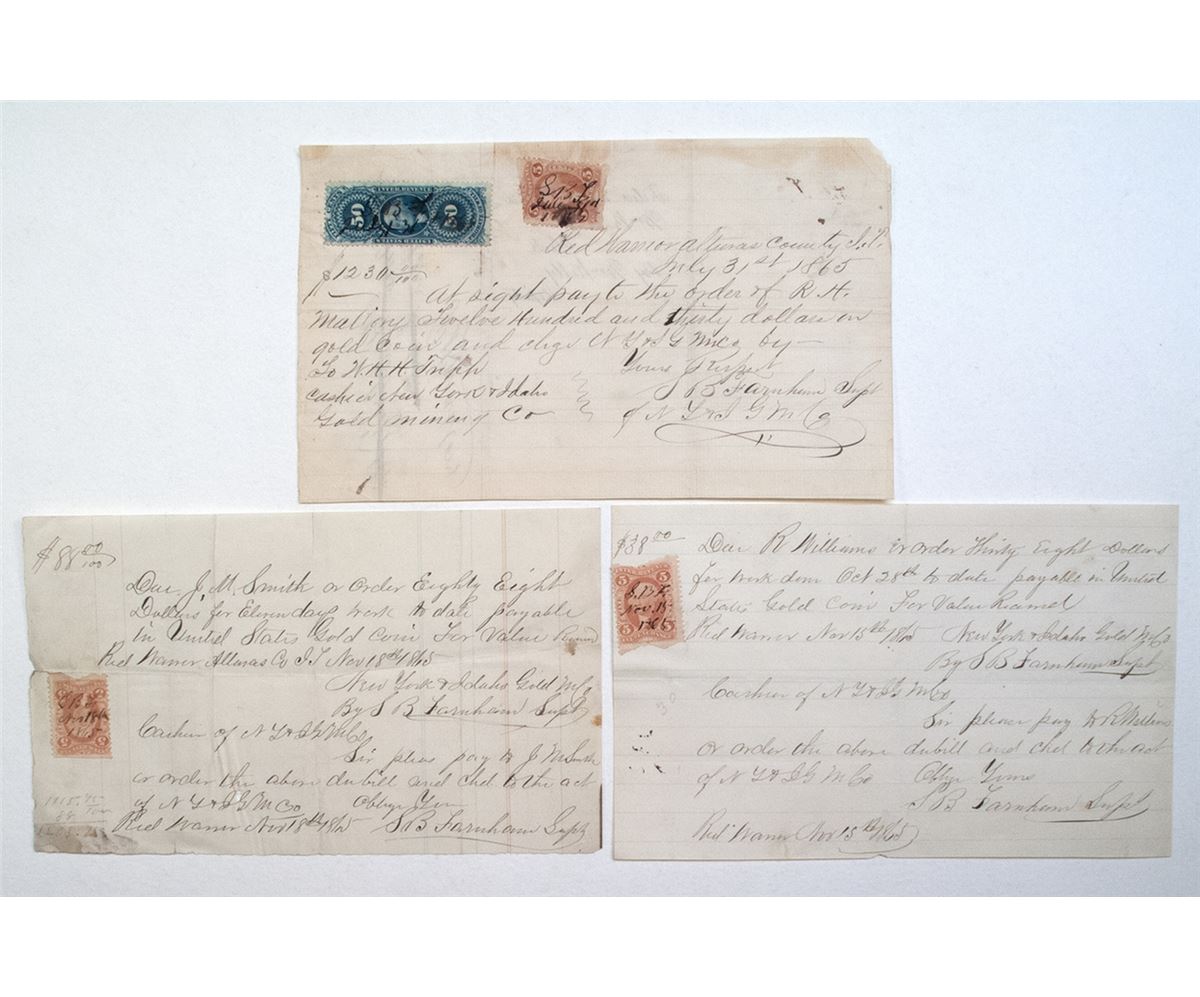 50
5
S.B.F.
Red Warrior Alturas County I.T.
July 31st 1865
$1230 00/100
At sight pay to the order of R. H.
Mallory Twelve Hundred and thirty dollars in
gold coin and chge N Y & I G M Co by
To W. H. H. Tripp
Yours Respect
cashier New York & Idaho
S B Farnham Supt
Gold mining Co
of N Y & I G M Co
$88 00/100
Due J. M. Smith or order Eighty Eight
Dollars for Eleven days work to date payable
in United States Gold Coin For Value
Red Warrer Alturas Co I T Nov 18th 1865
New York & Idaho Gold M Co
By S B Farnham Supt
2
Cashier of N Y & I G M Co
Sir pleas pay to J M Smith
or order the above dubill and chd to the act
of N Y & I G M Co Oblige Yours
Red Warrer Nov 18th 1865 S B Farnham Supt
$38 00
Due R Williams or order Thirty Eight Dollars
for work done Oct 28th to date payable in United
States Gold Coin For Value
5
S.B.F.
Nov. 15
1865
Red Warrer Nov 15th 1865 New York & Idaho Gold M Co
By S B Farnham Supt
Cashier of N Y & I G M Co
Sir please pay to R Williams
or order the above dubill and chd to the act
of N Y & I G M Co Oblige Yours
S B Farnham Supt
Red Warrer Nov 15th 1865